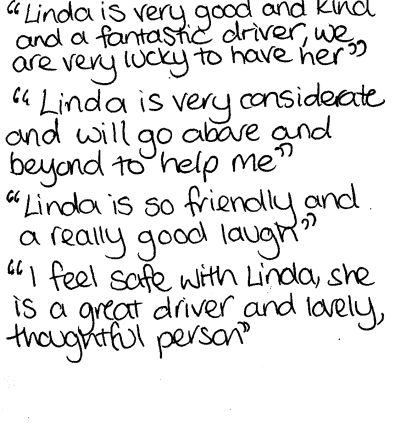 “Linda is very good and kind
and a fantastic driver, we
are very lucky to have her”
“Linda is very considerate
and will go above and
beyond to help me”
“Linda is so friendly and
a really good laugh”
“I feel safe with Linda, she
is a great driver and lovely,
thoughtful person”